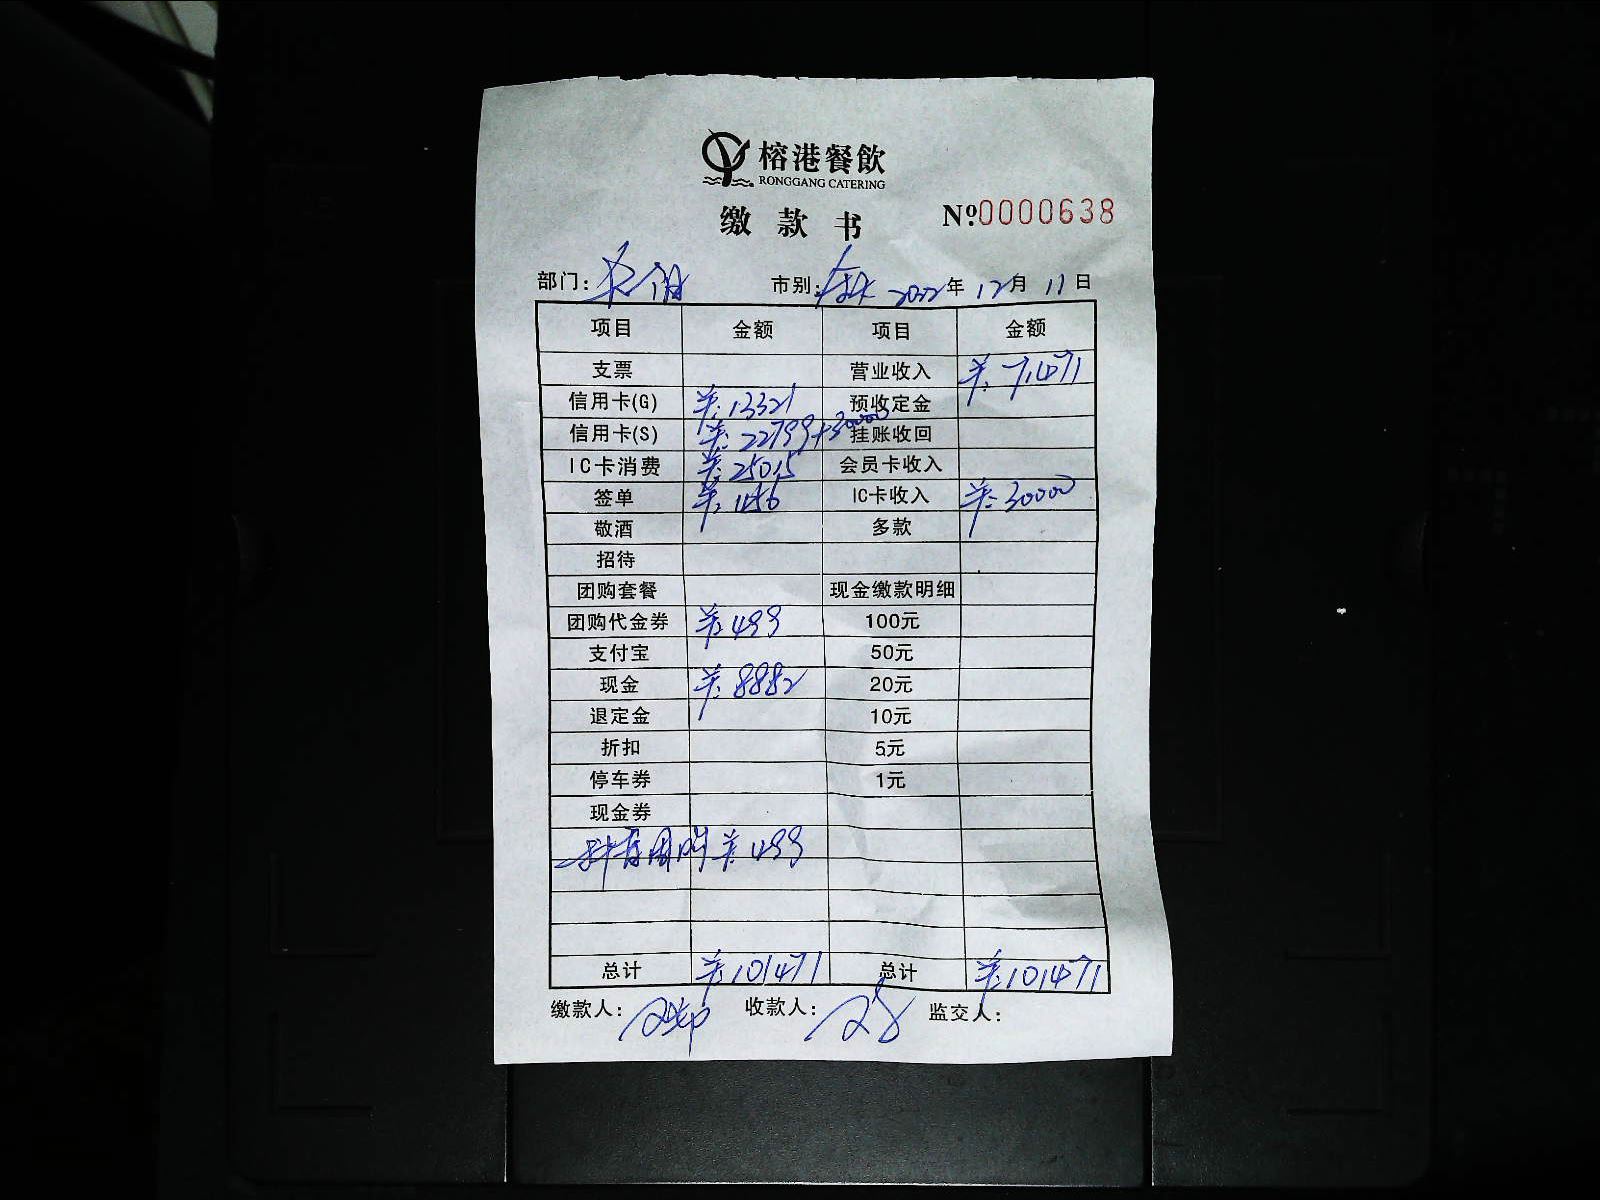 榕港餐飲
RONGGANG CATERING
缴款书 №0000638
部门: 市别: 2022年 12月 11日
项目 金额 项目 金额
支票 营业收入 ¥:71471
信用卡(G) ¥:13321 预收定金
信用卡(S) ¥:22799+30000 挂账收回
IC卡消费 ¥:25015 会员卡收入
签单 ¥:456 IC卡收入 ¥:30000
敬酒 多款
招待
团购套餐 现金缴款明细
团购代金券 ¥:499 100元
支付宝 50元
现金 ¥:8882 20元
退定金 10元
折扣 5元
停车券 1元
现金券
抖音团购 ¥:499
总计 ¥:101471 总计 ¥:101471
缴款人: 收款人: 监交人: